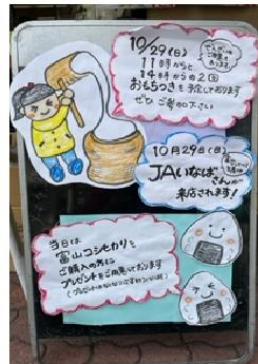 10/29(日)
11時からと
14時からの2回
おもちつきを予定しております
ぜひご参加下さい
10月29日(日)
JAいなばさんが
来店されます!
当日は
富山コシヒカリを
ご購入の方に
プレゼントをご用意しております